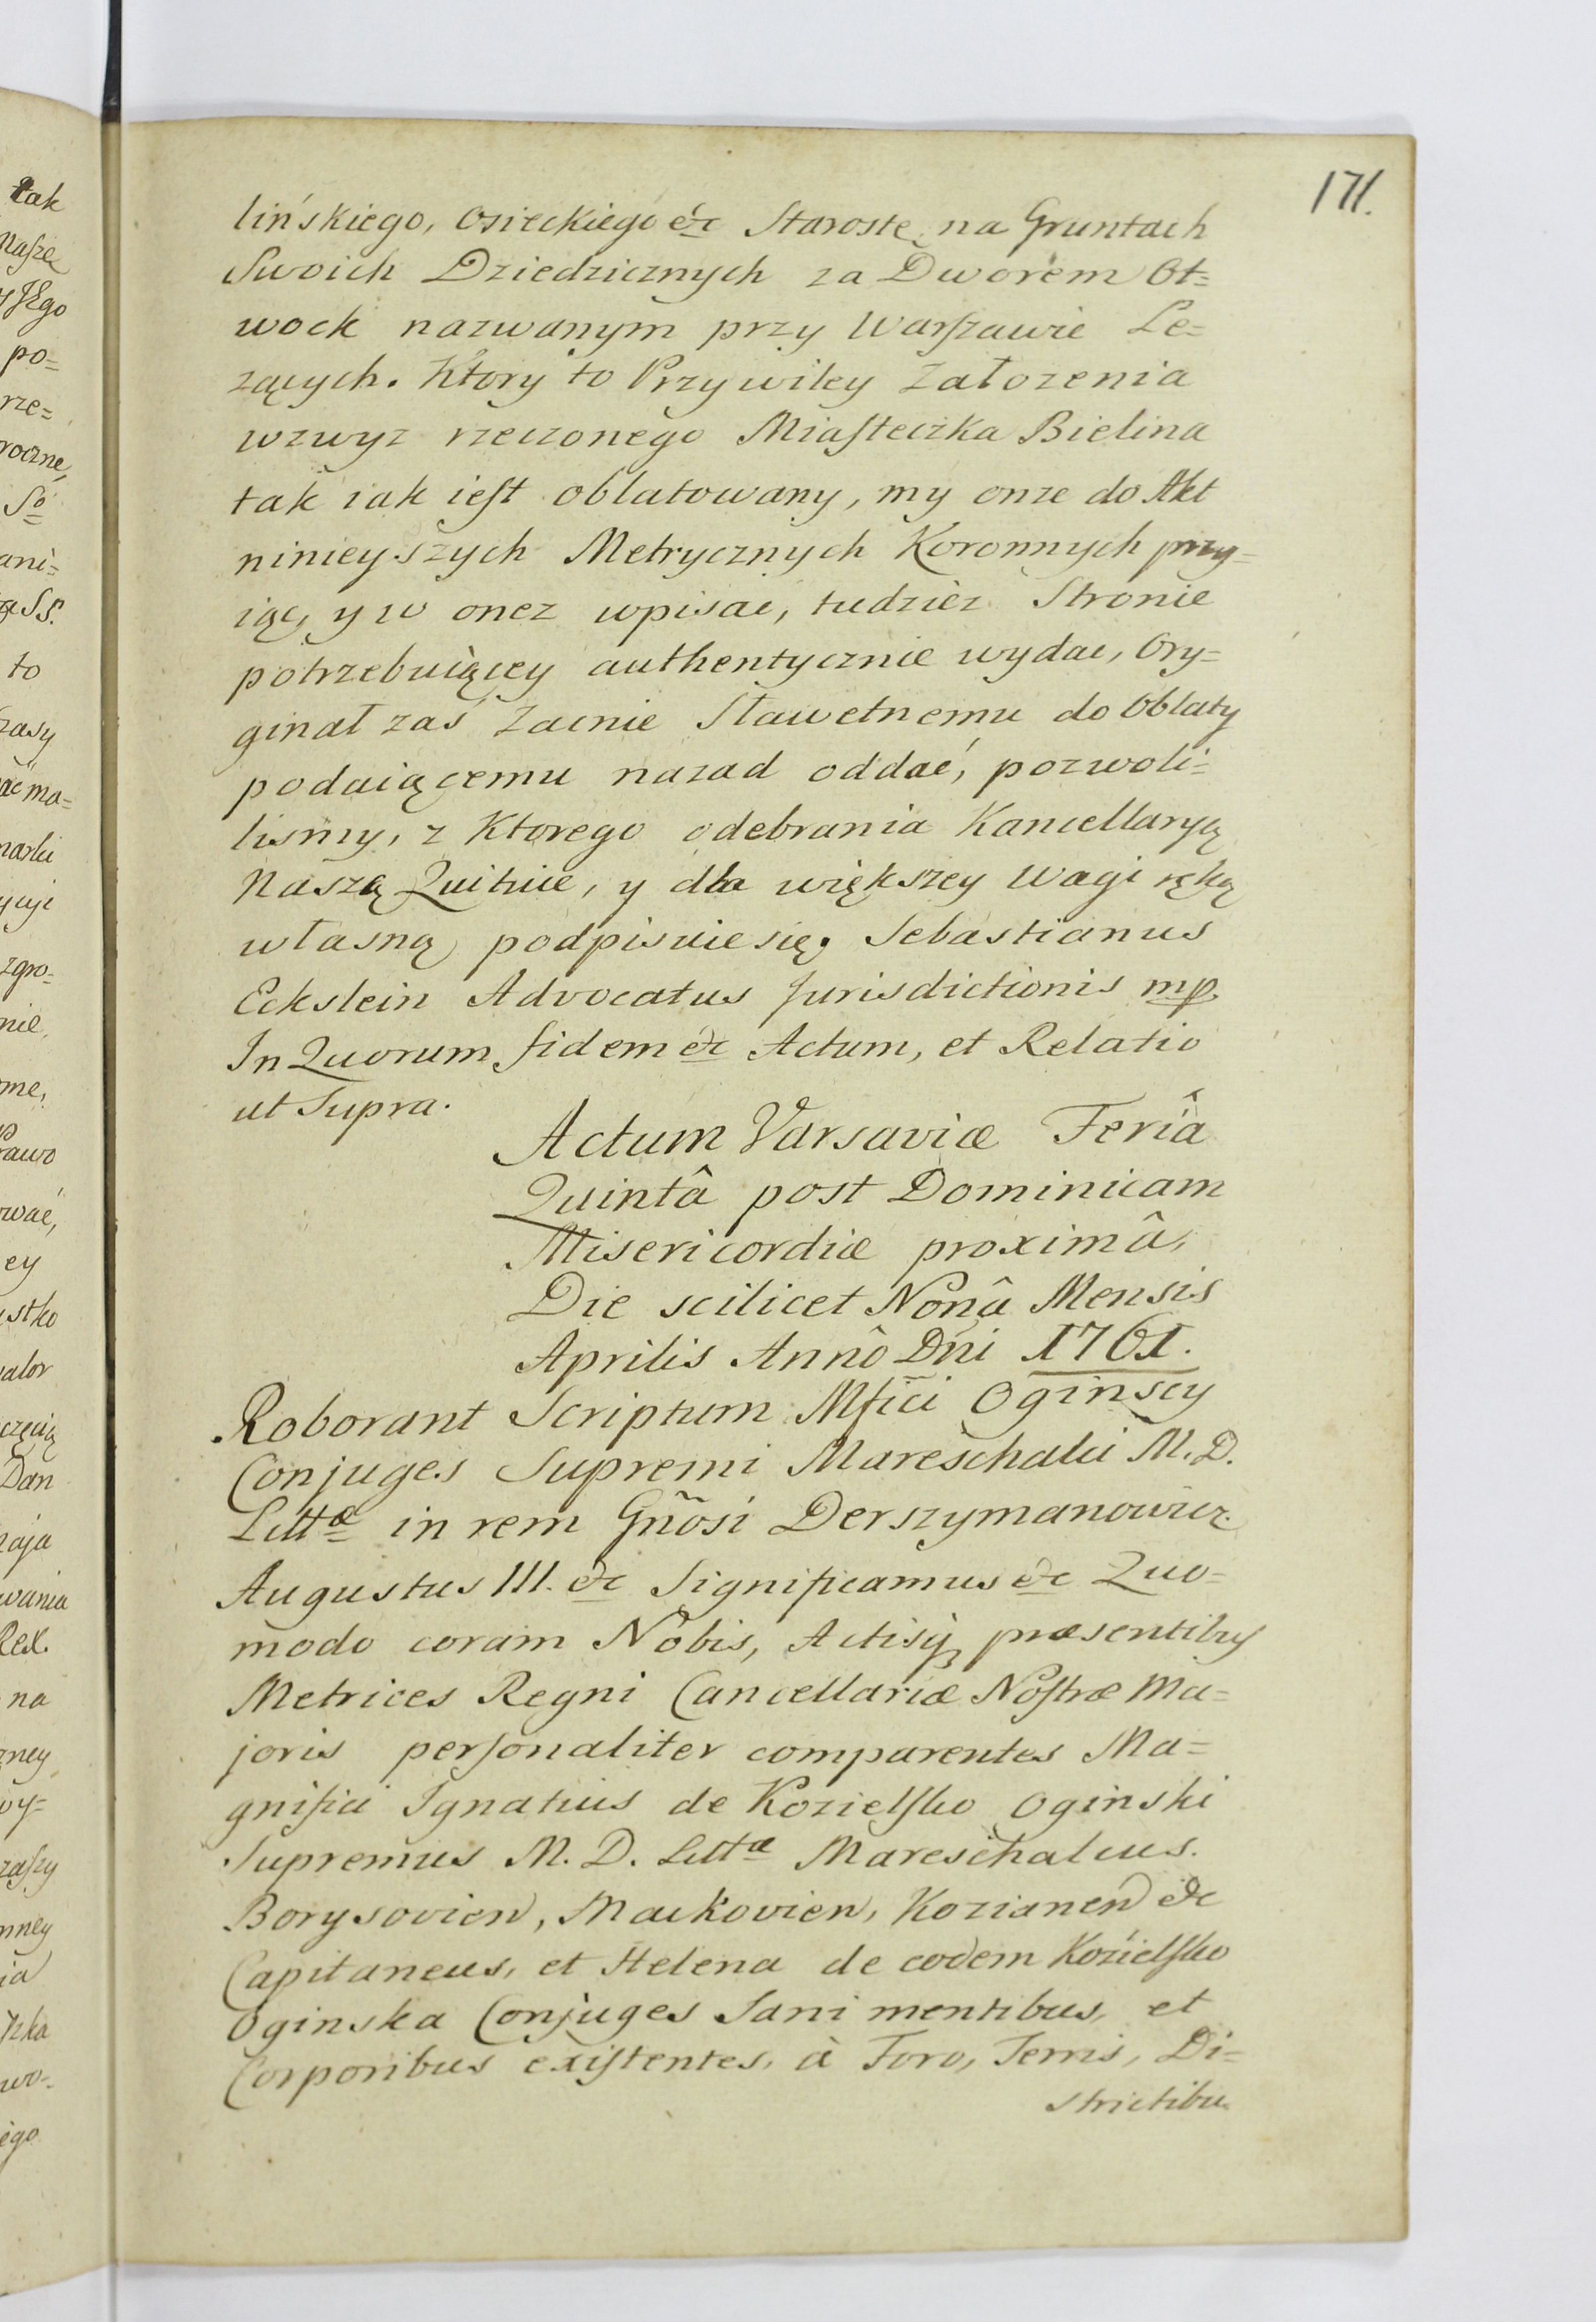 171.
lińskiego, Osieckiego &c Starostę na Gruntach
Swoich Dziedzicznych za Dworem Ot=
wock nazwanym przy Warszawie Le=
zących. Ktory to Przywiley Załozenia
wzwyz rzeczonego Miasteczka Bielina
tak iak iest oblatowany, my onze do Akt
ninieyszych Metrycznych Koronnych przy=
iąc, y w onez wpisac, tudziez Stronie
potrzebuiącey authentycznie wydac, Ory=
ginał zaś Zacnie Sławetnemu do Oblaty
podaiącemu nazad oddać, pozwoli=
lismy, z Ktorego odebrania Kancellaryą
Naszą Quituie, y dla większey wagi ręką
własną podpisuie się. Sebastianus
Eckslein Advocatus Jurisdictionis mp.
In Quorum fidem &c Actum, et Relatio
ut Supra.
Actum Varsaviæ Feriâ
Quintâ post Dominicam
Misericordiæ proximâ,
Die scilicet Nonâ Mensis
Aprilis Annô Dńi 1761.
Roborant Scriptum Mfici Oginscy
Conjuges Supremi Mareschalci M. D.
Littæ in rem Gñosi Derszymanowicz.
Augustus III. &c Significamus &c Quo=
modo coram Nobis, Actisq præsentibus
Metrices Regni Cancellariæ Nostræ Ma=
joris personaliter comparentes Ma=
gnifici Ignatius de Kozielsko Oginski
Supremus M. D. Littæ Mareschalcus.
Borysovien, Mackovien, Kozianen &c
Capitaneus, et Helena de eodem Kozielsko
Oginska Conjuges Sani mentibus, et
Corporibus existentes, à Foro, Terris, Di=
strictibu
tak
Naszę
po=
rze=
roczne,
to
ma=
zgro=
ey
Dan
wania
Rex.
na
zney
wy=